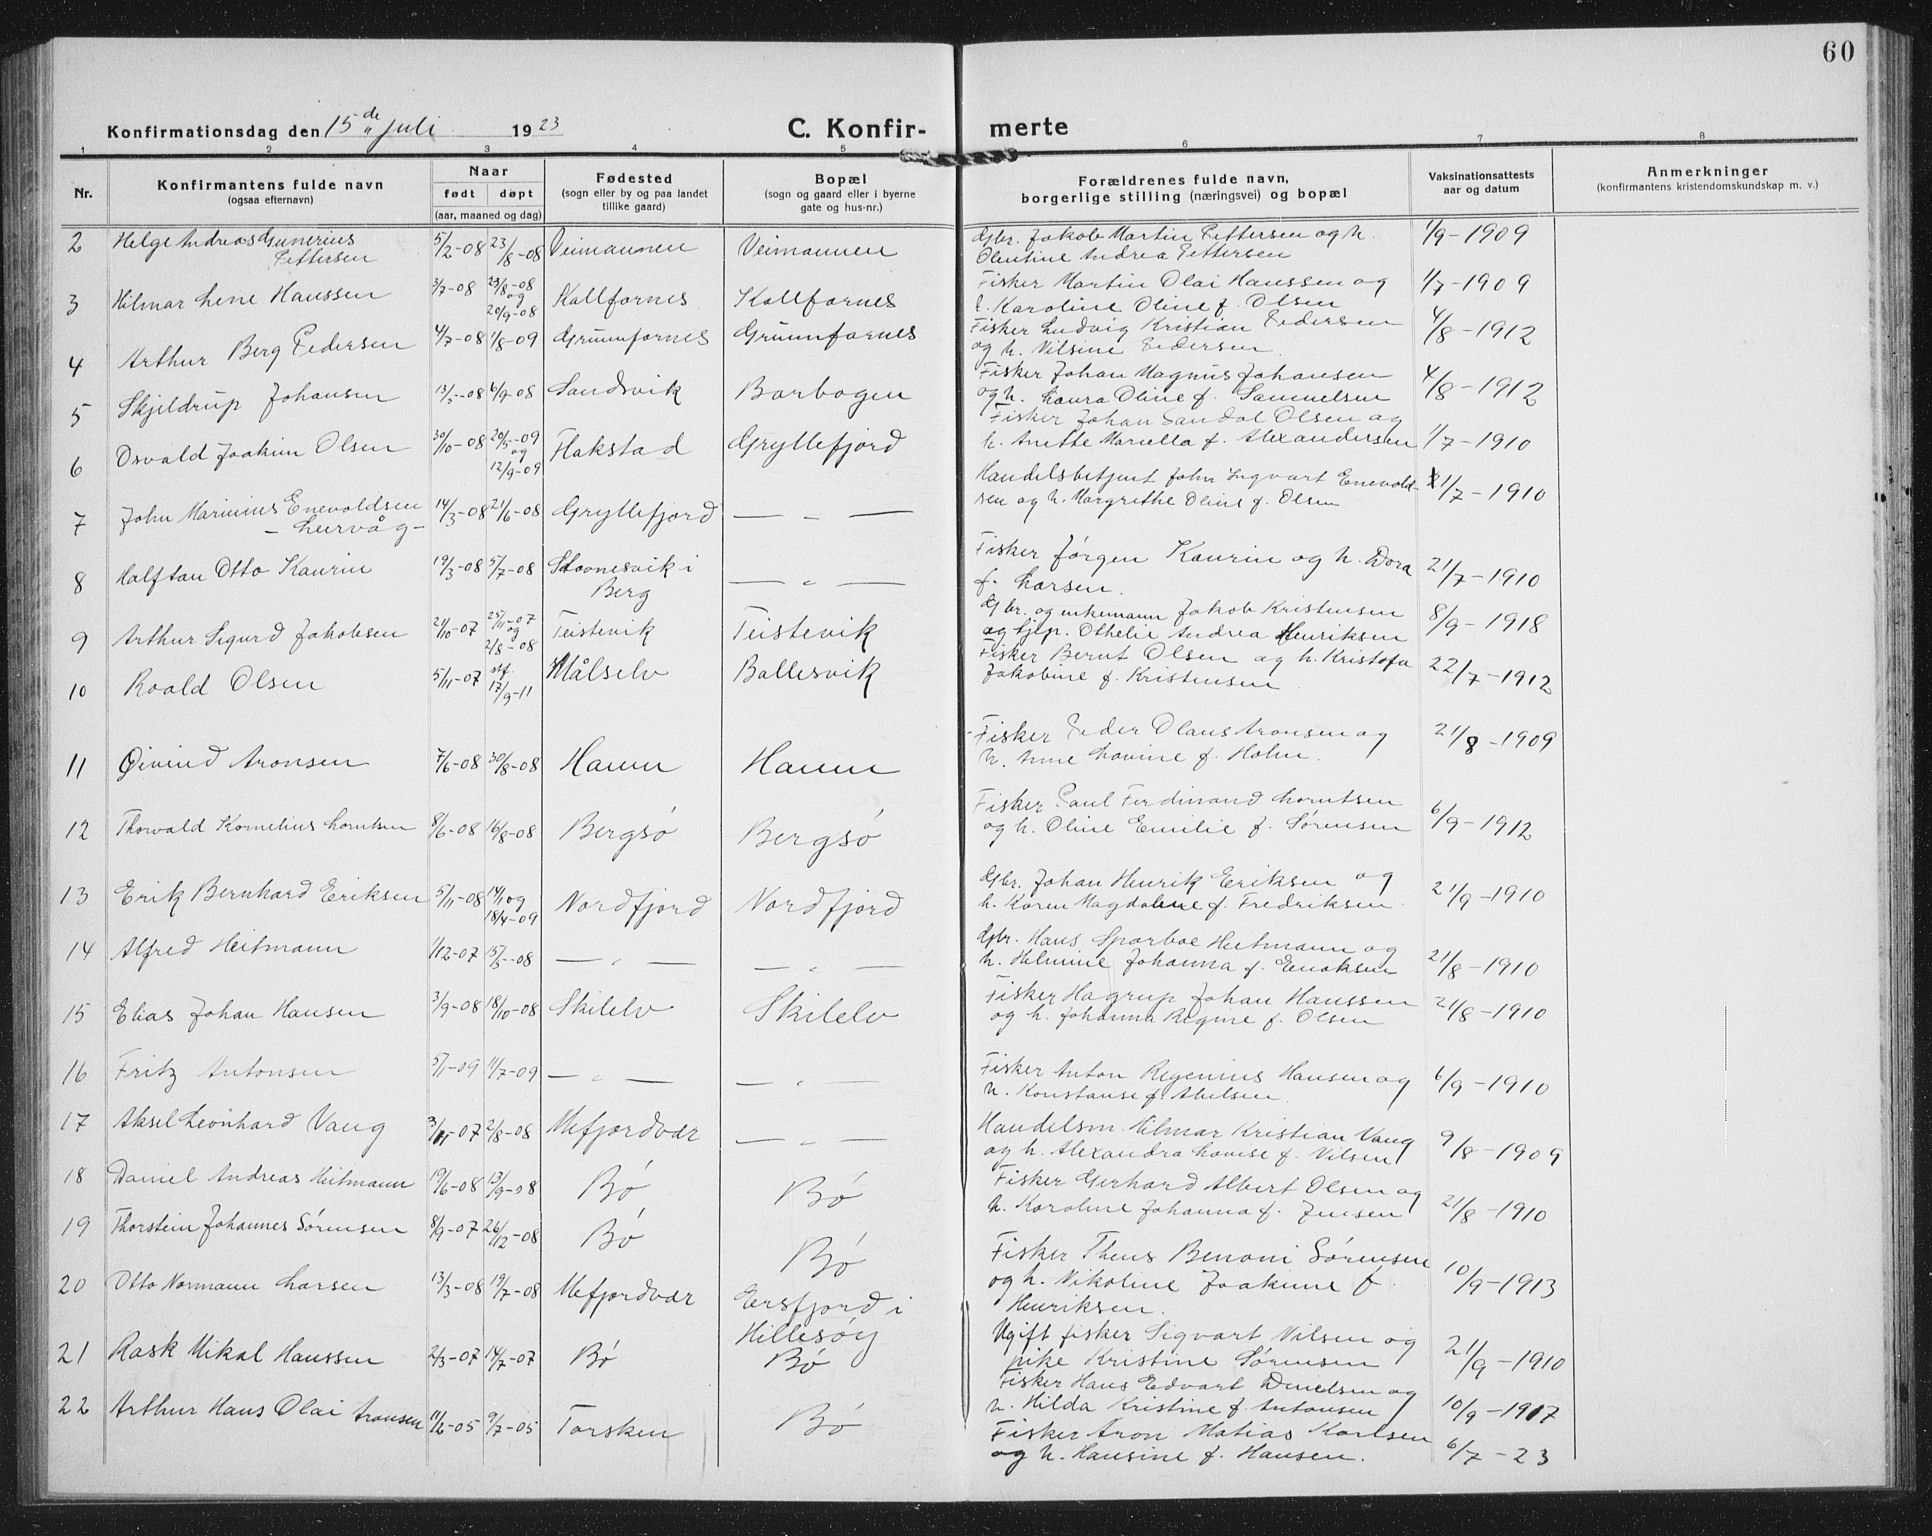 60
Konfirmationsdag den 15de juli 1923
C. Konfirmerte
1 2 3 4 5 6 7 8
Nr. Konfirmantens fulde navn (ogsaa efternavn) Naar født døpt (aar, maaned og dag) Fødested (sogn eller by og paa landet tillike gaard) Bopæl (sogn og gaard eller i byerne gate og hus-nr.) Forældrenes fulde navn, borgerlige stilling (næringsvei) og bopæl Vaksinationsattests aar og datum Anmerkninger (konfirmantens kristendomskundskap m. v.)
2 Helge Andreas Gunerius Pettersen 5/2-08 23/8-08 Veimannen Veimannen Gbr. Jakob Martin Pettersen og h. Olentine Andrea Pettersen 1/9-1909
3 Hilmar Lene Hanssen 3/7-08 23/8-08 og 20/9-08 Kallfarnes Kallfarnes Fisker Martin Olai Hanssen og h. Karoline Oline f. Olsen 1/7-1909
4 Arthur Berg Pedersen 4/7-08 1/8-09 Grunnfarnes Grunnfarnes Fisker Ludvig Kristian Pedersen og h. Nilsine Pedersen. 4/8-1912
5 Skjeldrup Johansen 13/5-08 6/9-08 Sandsvik Barbogen Fisker Johan Magnus Johansen og h. Laura Oline f. Samuelsen 4/8-1912
6 Osvald Joakim Olsen 30/10-08 20/5-09 og 12/9-09 Flakstad Gryllefjord Fisker Johan Sandal Olsen og h. Anette Mariella f. Alexandersen 1/7-1910
7 John Marinius Enevoldsen - Lurvåg - 14/3-08 21/6-08 Gryllefjord — " — Handelsbetjent John Sigvart Enevoldsen og h. Margrethe Oline f. Olsen 21/7-1910
8 Halftan Otto Kaurin 19/3-08 5/7-08 Skovnesvik i Berg — " — Fisker Jørgen Kaurin og h. Dora f. Larsen. 21/7-1910
9 Arthur Sigurd Jakobsen 21/10-07 25/11-07 og 2/8-08 Teistevik Teistevik Gbr. og enkemann Jakob Kristensen og tjp. Othelie Andrea Henriksen 8/9-1918
10 Roald Olsen 5/11-07 17/9-11 Målselv Ballesvik Fisker Bernt Olsen og h. Kristofa Jakobine f. Kristensen 22/7-1912
11 Øivind Aronsen 7/6-08 30/8-08 Hamn Hamn Fisker Peder Olaus Aronsen og h. Anne Lovine f. Holm. 21/8-1909
12 Thorvald Kornelius Lorntsen 8/6-08 16/8-08 Bergsø Bergsø Fisker Paul Ferdinand Lorntsen og h. Oline Emilie f. Sørensen 6/9-1912
13 Erik Bernhard Eriksen 5/11-08 14/11 og 18/4-09 Nordfjord Nordfjord Gbr. Johan Henrik Eriksen og h. Karen Magdalene f. Fredriksen. 21/9-1910
14 Alfred Heitmann 1/12-07 15/5-08 — " — — " — Gbr. Hans Sparboe Heitmann og h. Helmine Johanna f. Enoksen 21/8-1910
15 Elias Johan Hansen 3/9-08 18/10-08 Skilelv Skilelv Fisker Hagrup Johan Hanssen og h. Johanna Regine f. Olsen 21/8-1910
16 Fritz Antonsen 5/1-09 11/7-09 — " — — " — Fisker Anton Regenius Hansen og h. Konstanse f. Abelsen. 6/9-1910
17 Aksel Leonhard Vang 3/11-07 2/8-08 Mefjordvær — " — Handelsm. Hilmar Kristian Vang og h. Alexandra Lovise f. Nilsen 9/8-1909
18 Daniel Andreas Heitmann 19/6-08 13/9-08 Bø Bø Fisker Gerhard Albert Olsen og h. Karoline Johanna f. Jensen 21/8-1910
19 Thorstein Johannes Sørensen 8/9-07 26/12-08 Bø Bø Fisker Thens Benoni Sørensen og h. Nikoline Joakime f. Henriksen. 10/9-1913
20 Otto Normann Larsen 13/3-08 19/7-08 Mefjordvær Ersfjord i Hillesøy Ugift fisker Sigvart Nilsen og pike Kristine Sørensen 21/9-1910
21 Rask Mikal Hanssen 2/3-07 14/7-07 Bø Bø Fisker Hans Edvart Danielsen og h. Hilda Kristine f. Antonsen 10/9-1917
22 Arthur Hans Olai Aronsen 11/2-05 9/7-05 Torsken Bø Fisker Aron Matias Karlsen og h. Hansine f. Hansen. 6/7-23